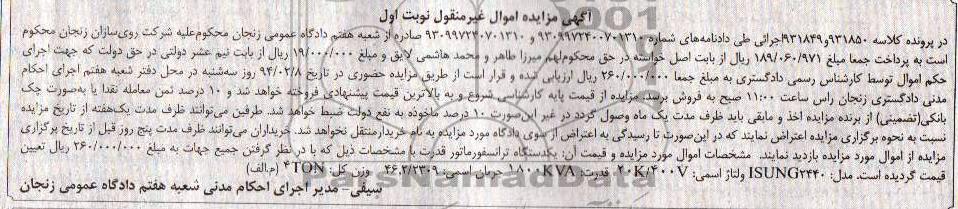 آگهی مزایده اموال غیرمنقول نوبت اول
در پرونده کلاسه ۹۳۱۸۵۰و۹۳۱۸۴۹اجرائی طی دادنامه‌های شماره ۹۳۰۹۹۷۲۴۰۰۷۰۱۳۱۰ و ۹۳۰۹۹۷۲۴۰۷۰۱۳۱۰ صادره از شعبه هفتم دادگاه عمومی زنجان محکوم‌علیه شرکت روی‌سازان زنجان محکوم
است به پرداخت جمعا مبلغ ۱۸۹/۰۶۰/۹۷۱ ریال از بابت اصل خواسته در حق محکوم‌لهم میرزا طاهر و محمد هاشمی لایق و مبلغ ۱۹/۰۰۰/۰۰۰ ریال از بابت نیم عشر دولتی در حق دولت که جهت اجرای
حکم اموال توسط کارشناس رسمی دادگستری به مبلغ جمعا ۲۶۰/۰۰۰/۰۰۰ ریال ارزیابی شده و قرار است از طریق مزایده حضوری در تاریخ ۹۴/۰۲/۸ روز سه‌شنبه در محل دفتر شعبه هفتم اجرای احکام
مدنی دادگستری زنجان راس ساعت ۱۱:۰۰ صبح به فروش برسد. مزایده از قیمت پایه کارشناسی شروع و به بالاترین قیمت پیشنهادی فروخته خواهد شد و ۱۰ درصد ثمن معامله نقدا یا به‌صورت چک
بانکی(تضمینی) از برنده مزایده اخذ و مابقی باید ظرف مدت یک ماه وصول گردد در غیر این‌صورت ۱۰ درصد ماخوذه به نفع دولت ضبط خواهد شد. طرفین می‌توانند ظرف مدت یک‌هفته از تاریخ مزایده
نسبت به نحوه برگزاری مزایده اعتراض نمایند که در این‌صورت تا رسیدگی به اعتراض از سوی دادگاه مورد مزایده به نام خریدارمنتقل نخواهد شد. خریداران می‌توانند ظرف مدت پنج روز قبل از تاریخ برگزاری
مزایده از اموال مورد مزایده بازدید نمایند. مشخصات اموال مورد مزایده و قیمت آن: یکدستگاه ترانسفورماتور قدرت با مشخصات ذیل که با در نظر گرفتن جمیع جهات به مبلغ ۲۶۰/۰۰۰/۰۰۰ ریال تعیین
قیمت گردیده است. مدل: ISUNG۲۴۴۰ ولتاژ اسمی: ۲۰K/۴۰۰V قدرت: ۱۸۰۰KVA جریان اسمی: ۴۶.۲/۲۳۰۹ وزن کل: ۴TON (م.الف)
سیفی- مدیر اجرای احکام مدنی شعبه هفتم دادگاه عمومی زنجان